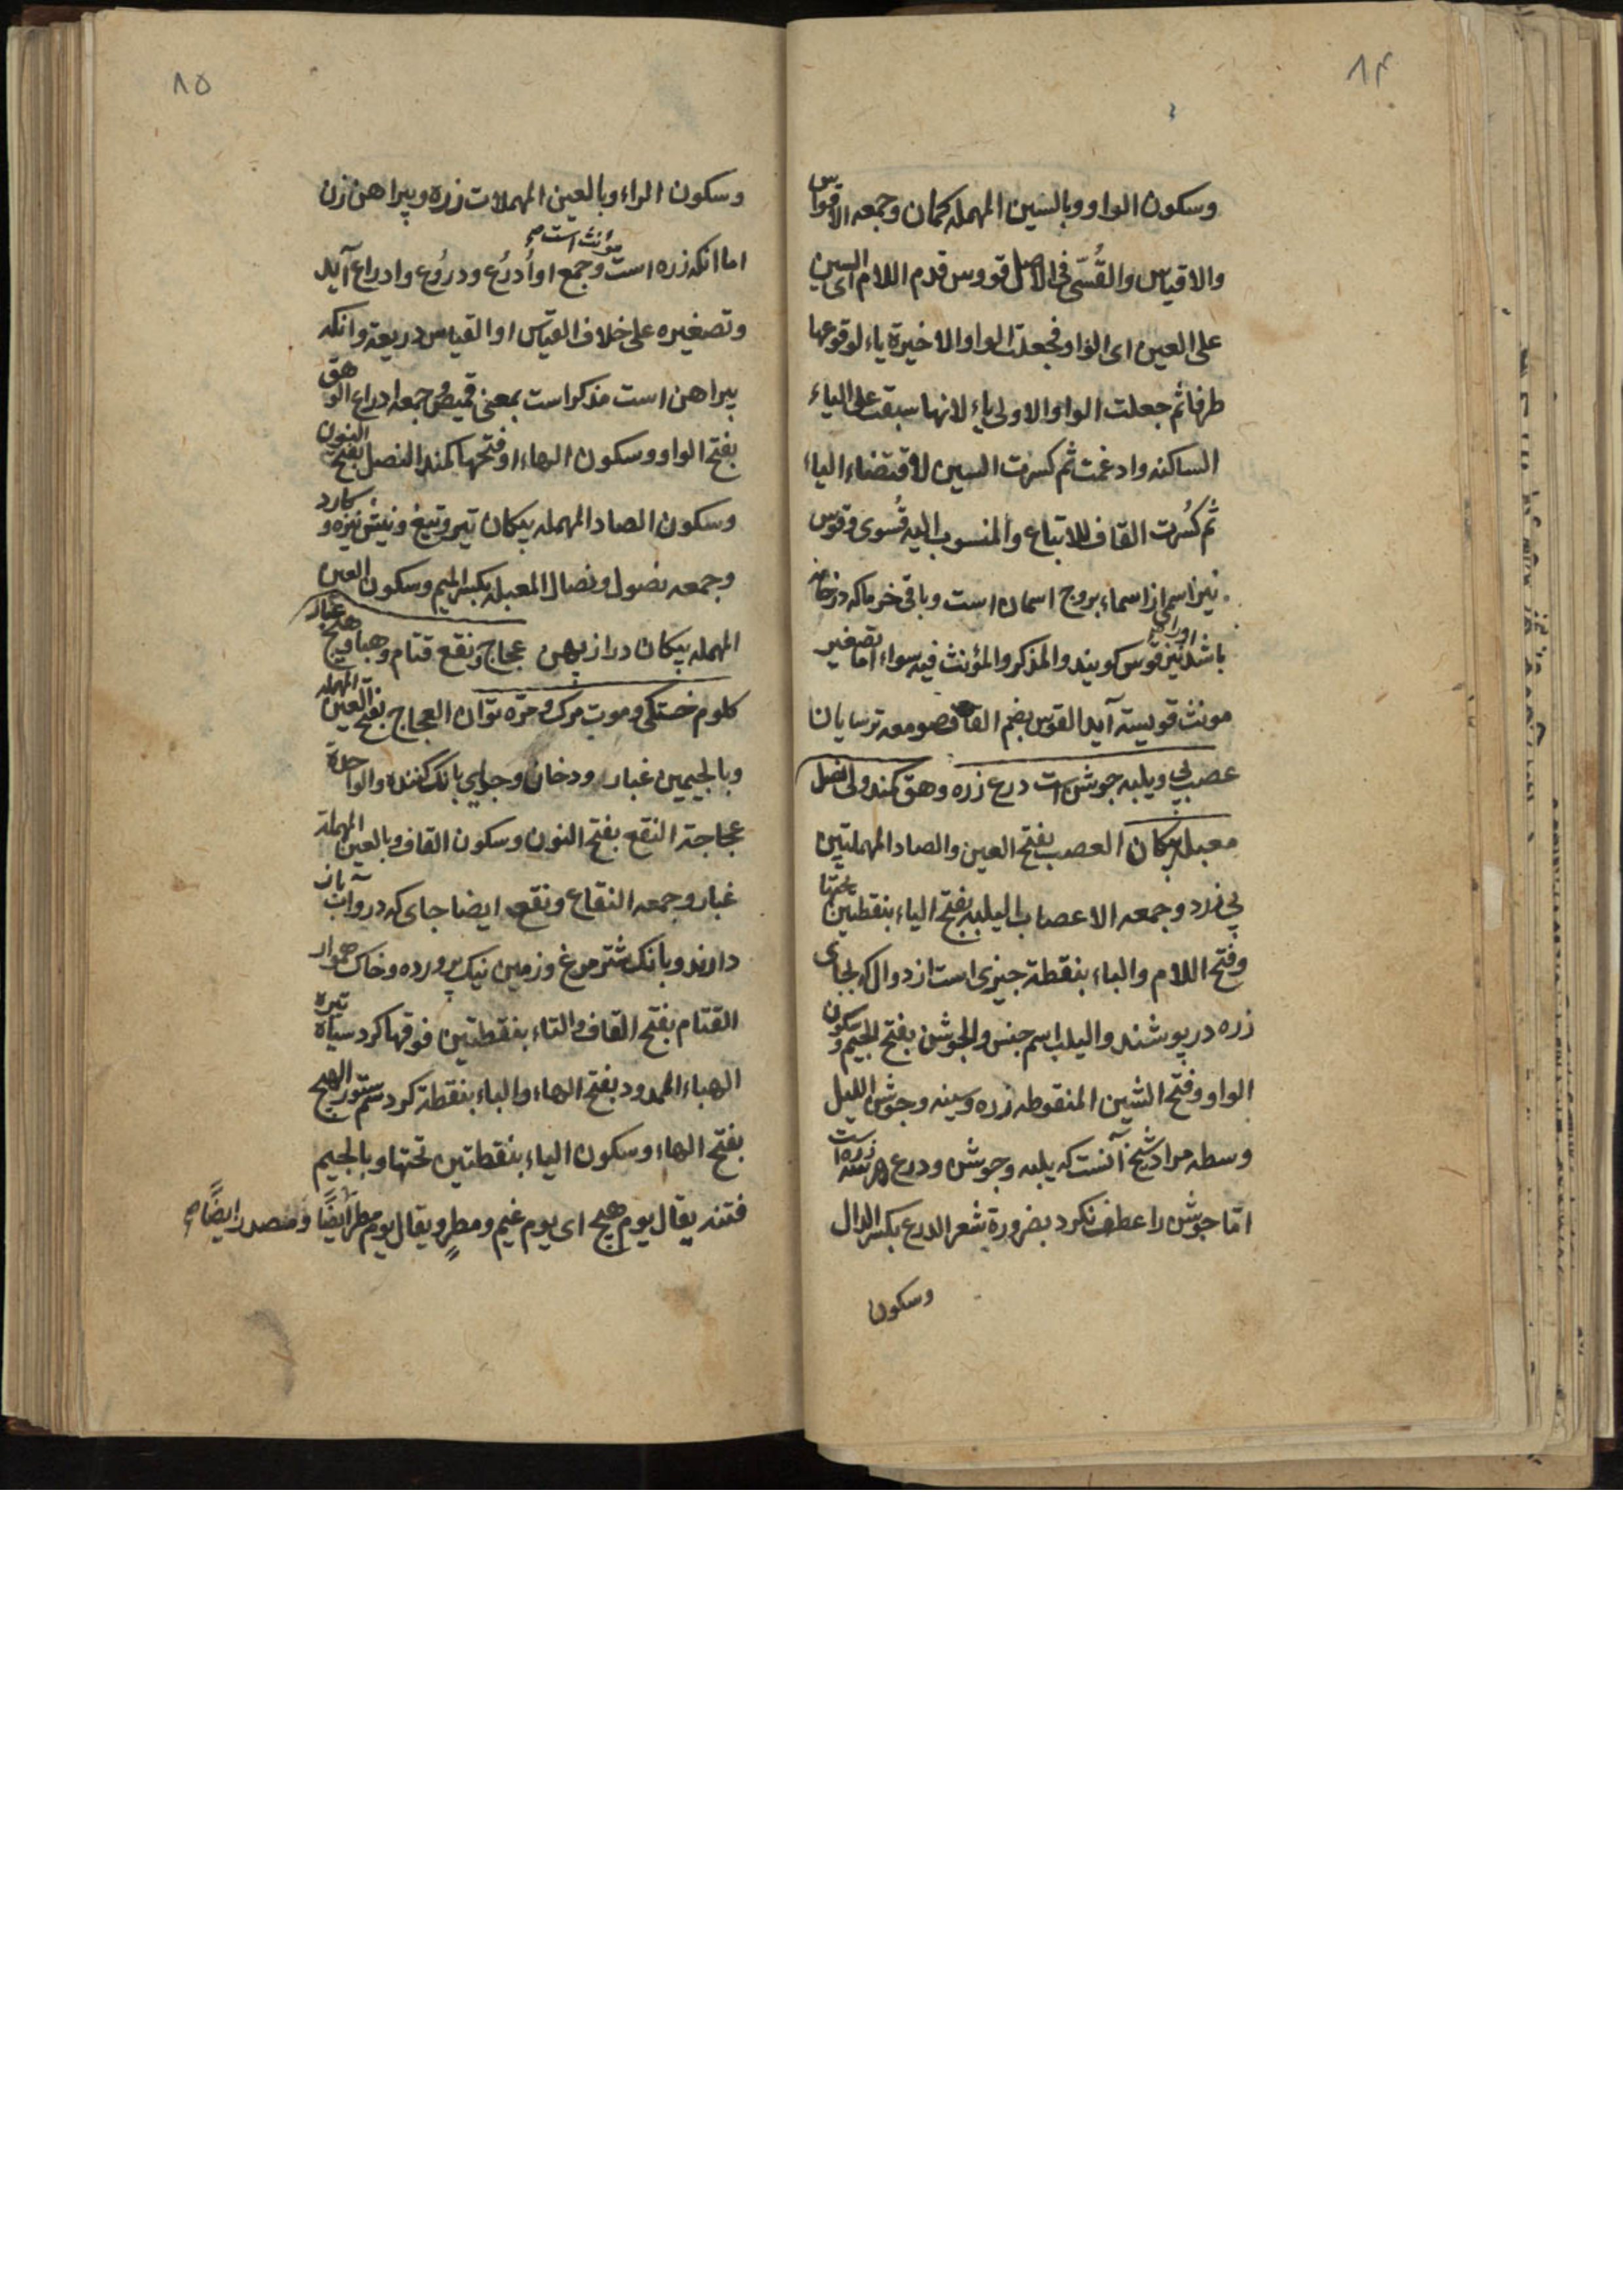 ۸۴
وسکون الواو وبالسین المهمله کمان وجمعه الاقواس
والاقیاس والقُسّی فی الاصل قووس قدم اللام ای السین
علی العین ای الواو فجعلت الواو الاخیرة یاء لوقوعها
طرفا ثم جعلت الواو الاولی یاء لانها سبقت علی الیاء
الساکنه وادغمت ثم کسرت السین لاقتضاء الیاء
ثم کُسرت القاف للاتباع والمنسوب الیه قُسوی وقوس
نیز اسمی از اسماء بروج اسمان است وباقی خرما که در خانه
باشد اورا نیز قوس کویند والمذکر والمؤنث فیه سواء اما تصغیر
مونث قویسة آید القوس بضم القاف صومعه ترسایان
عصب پی ویلبه جوشن است درع زره وهق کمند ولی نصل
معبل پیکان العصب بفتح العین والصاد المهملتین
پی زرد وجمعه الاعصاب الیلبه بفتح الیاء بنقطتین تحتها
وفتح اللام والباء بنقطة چیزی است از دوال که بجای
زره در پوشند والیلب اسم جنس والجوشن بفتح الجیم وسکون
الواو وفتح الشین المنقوطه زره وسینه وجوشن اللیل
وسطه مراد شیخ آنست که یلبه وجوشن ودرع هر سه زره است
امّا جوشن را عطف نکرد بضرورة شعر الدرع بکسر الدال
وسکون
۸۵
وسکون الراء وبالعین المهملات زره وپیراهن زن
اما انکه زره است مؤنث است وجمع او اُدرُع ودرُوع وادراع آید
وتصغیره علی خلاف القیّس او القیاس دریعة وانکه
پیراهن است مذکر است بمعنی قمیص وجمعه ادراع الوهق
بفتح الواو وسکون الهاء او فتحها کمند النصل بفتح النون
وسکون الصاد المهمله پیکان تیر وتیغ ونیش نیزه وکارد
وجمعه نصول ونصال المعبله بکسر المیم وسکون العین
المهمله پیکان دراز پهن عجاج ونقع قتام وهبا وهیج غبار
کلوم خستکی وموت مرک ومرّه توان العجاج بفتح العین المهمله
وبالجیمین غبار ودخان وجوای بانک کننده والواحدة
عجاجة النقع بفتح النون وسکون القاف وبالعین المهملة
غبار وجمعه النقاع ونقع ایضا جای که در وآب باز
دارند وبانک شتر مرغ وزمین نیک پرورده وخاک هموار
القتام بفتح القاف والتاء بنقطتین فوقها کرد سیاه تیره
الهباء الممدود بفتح الهاء والباء بنقطة کرد سم ستور الهیج
بفتح الهاء وسکون الیاء بنقطتین تحتها وبالجیم
فتنه یقال یوم هیج ای یوم غیم ومطر ویقال یوم مطر ایضًا ومصدر ایضًا